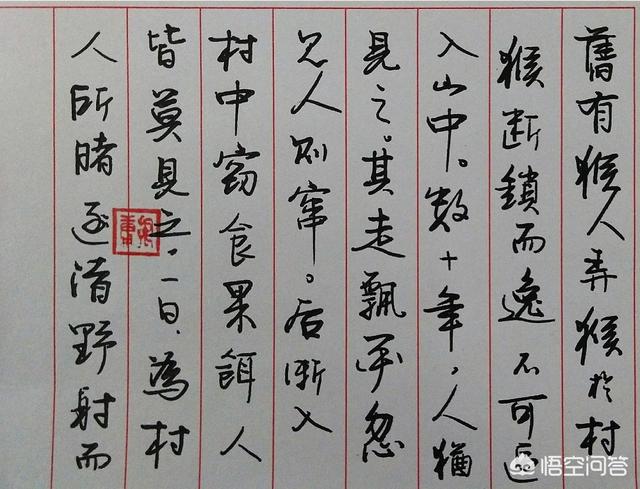 舊有猴人弄猴於村
猴断鎖而逸不可追
入山中。数十年，人猶
見之。其走飄忽
见人则窜。后渐入
村中窃食果餌人
皆莫見之。一日，為村
人所睹逐诸野射而
悟空问答